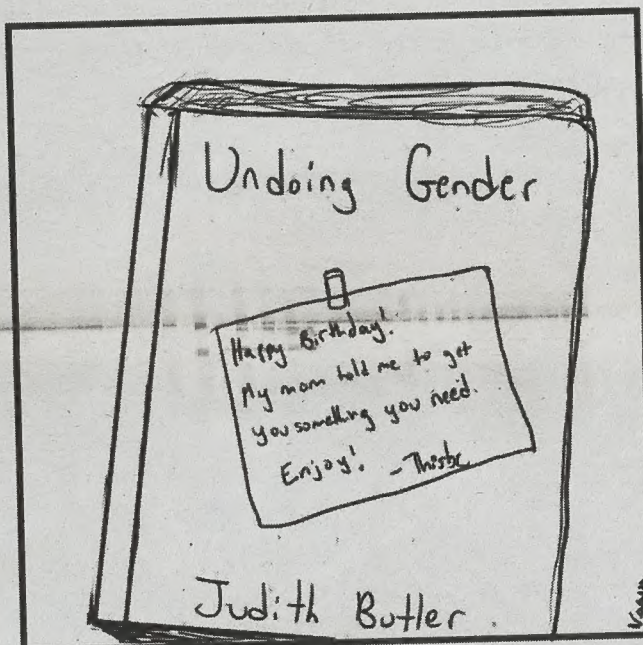 Undoing Gender
Happy Birthday!
My mom told me to get
you something you need.
Enjoy! -Thisbe
Judith Butler